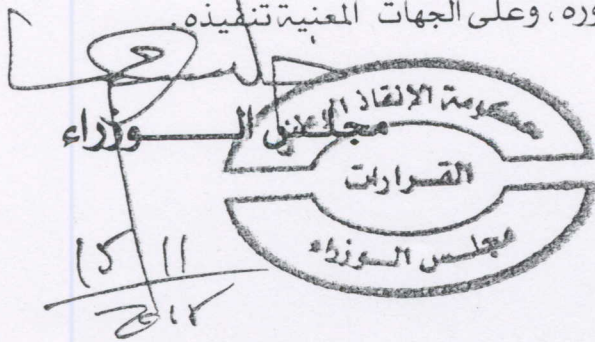 وره، وعلى الجهات المعنية تنفيذه.
مجلس الوزراء
حكومة الإنقاذ
القرارات
مجلس الوزراء